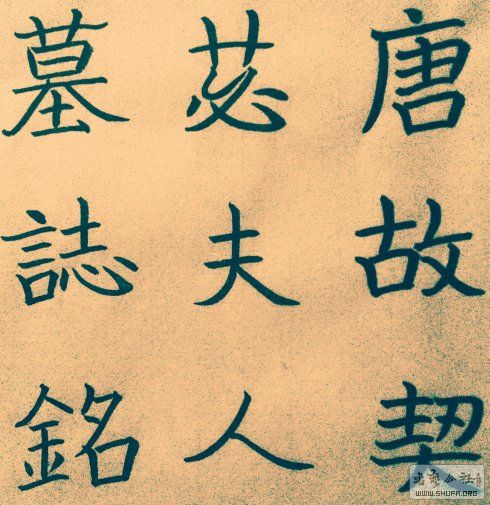 唐故契
苾夫人
墓誌銘
WWW.SHUFA.ORG